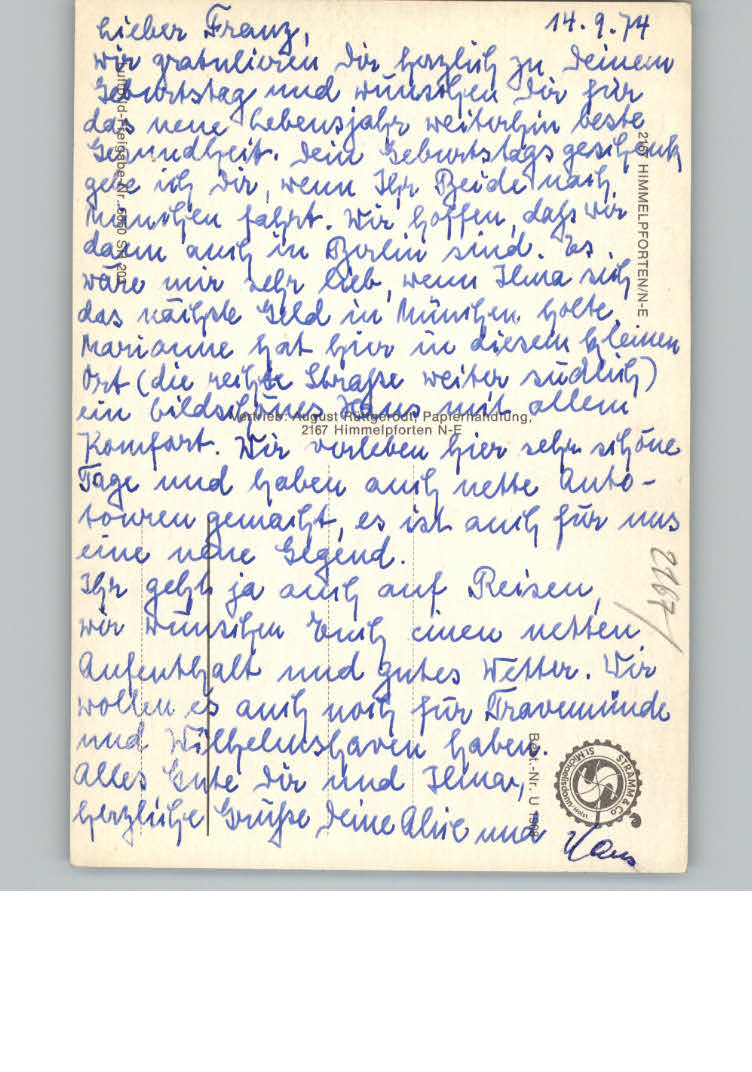 14.9.74
Lieber Franz,
wir gratulieren Dir herzlich zu Deinem
Geburtstag und wünschen Dir für
das neue Lebensjahr weiterhin beste
Gesundheit. Dein Geburtstagsgeschenk
gebe ich Dir, wenn Ihr Beide nach
München fahrt. Wir hoffen, dass wir
dann auch in Berlin sind. Es
wäre mir sehr lieb, wenn Ilma sich
das nächste Geld in München holte.
Marianne hat hier in diesem kleinen
Ort (die rechte Straße weiter südlich)
ein bildschönes Haus mit allem
Komfort. Wir verleben hier sehr schöne
Tage und haben auch nette Auto-
touren gemacht, es ist auch für uns
eine neue Gegend.
Ihr geht ja auch auf Reisen,
wir wünschen Euch einen netten
Aufenthalt und gutes Wetter. Wir
wollen es auch noch für Travemünde
und Wilhelmshaven haben.
Alles Gute Dir und Ilma,
herzliche Grüße Deine Alice und
Hans
Luftbild-Freigabe-Nr.
2167 HIMMELPFORTEN/N-E
Vertrieb: August Rüttgerodt, Papierhandlung,
2167 Himmelpforten N-E
2167
Best.-Nr. U
STRAMM & Co.
St. Michaelisdonn